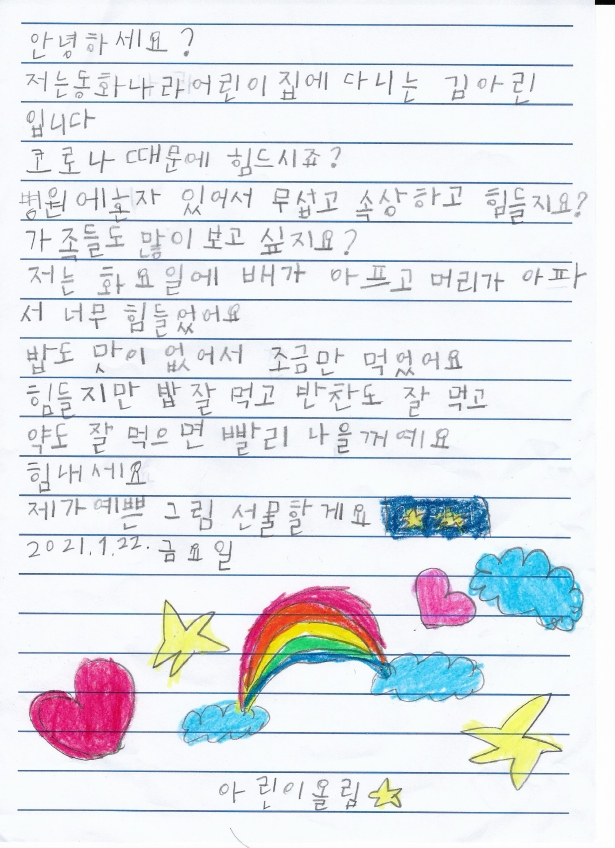 안녕하세요?
저는동화나라어린이집에 다니는 김아린
입니다
코로나 때문에 힘드시죠?
병원에혼자 있어서 무섭고 속상하고 힘들지요?
가족들도 많이 보고 싶지요?
저는 화요일에 배가 아프고 머리가 아파
서 너무 힘들었어요
밥도 맛이 없어서 조금만 먹었어요
힘들지만 밥 잘 먹고 반찬도 잘 먹고
약도 잘 먹으면 빨리 나을꺼예요
힘내세요
제가예쁜 그림 선물할게요
2021.1.22. 금요일
아린이올림